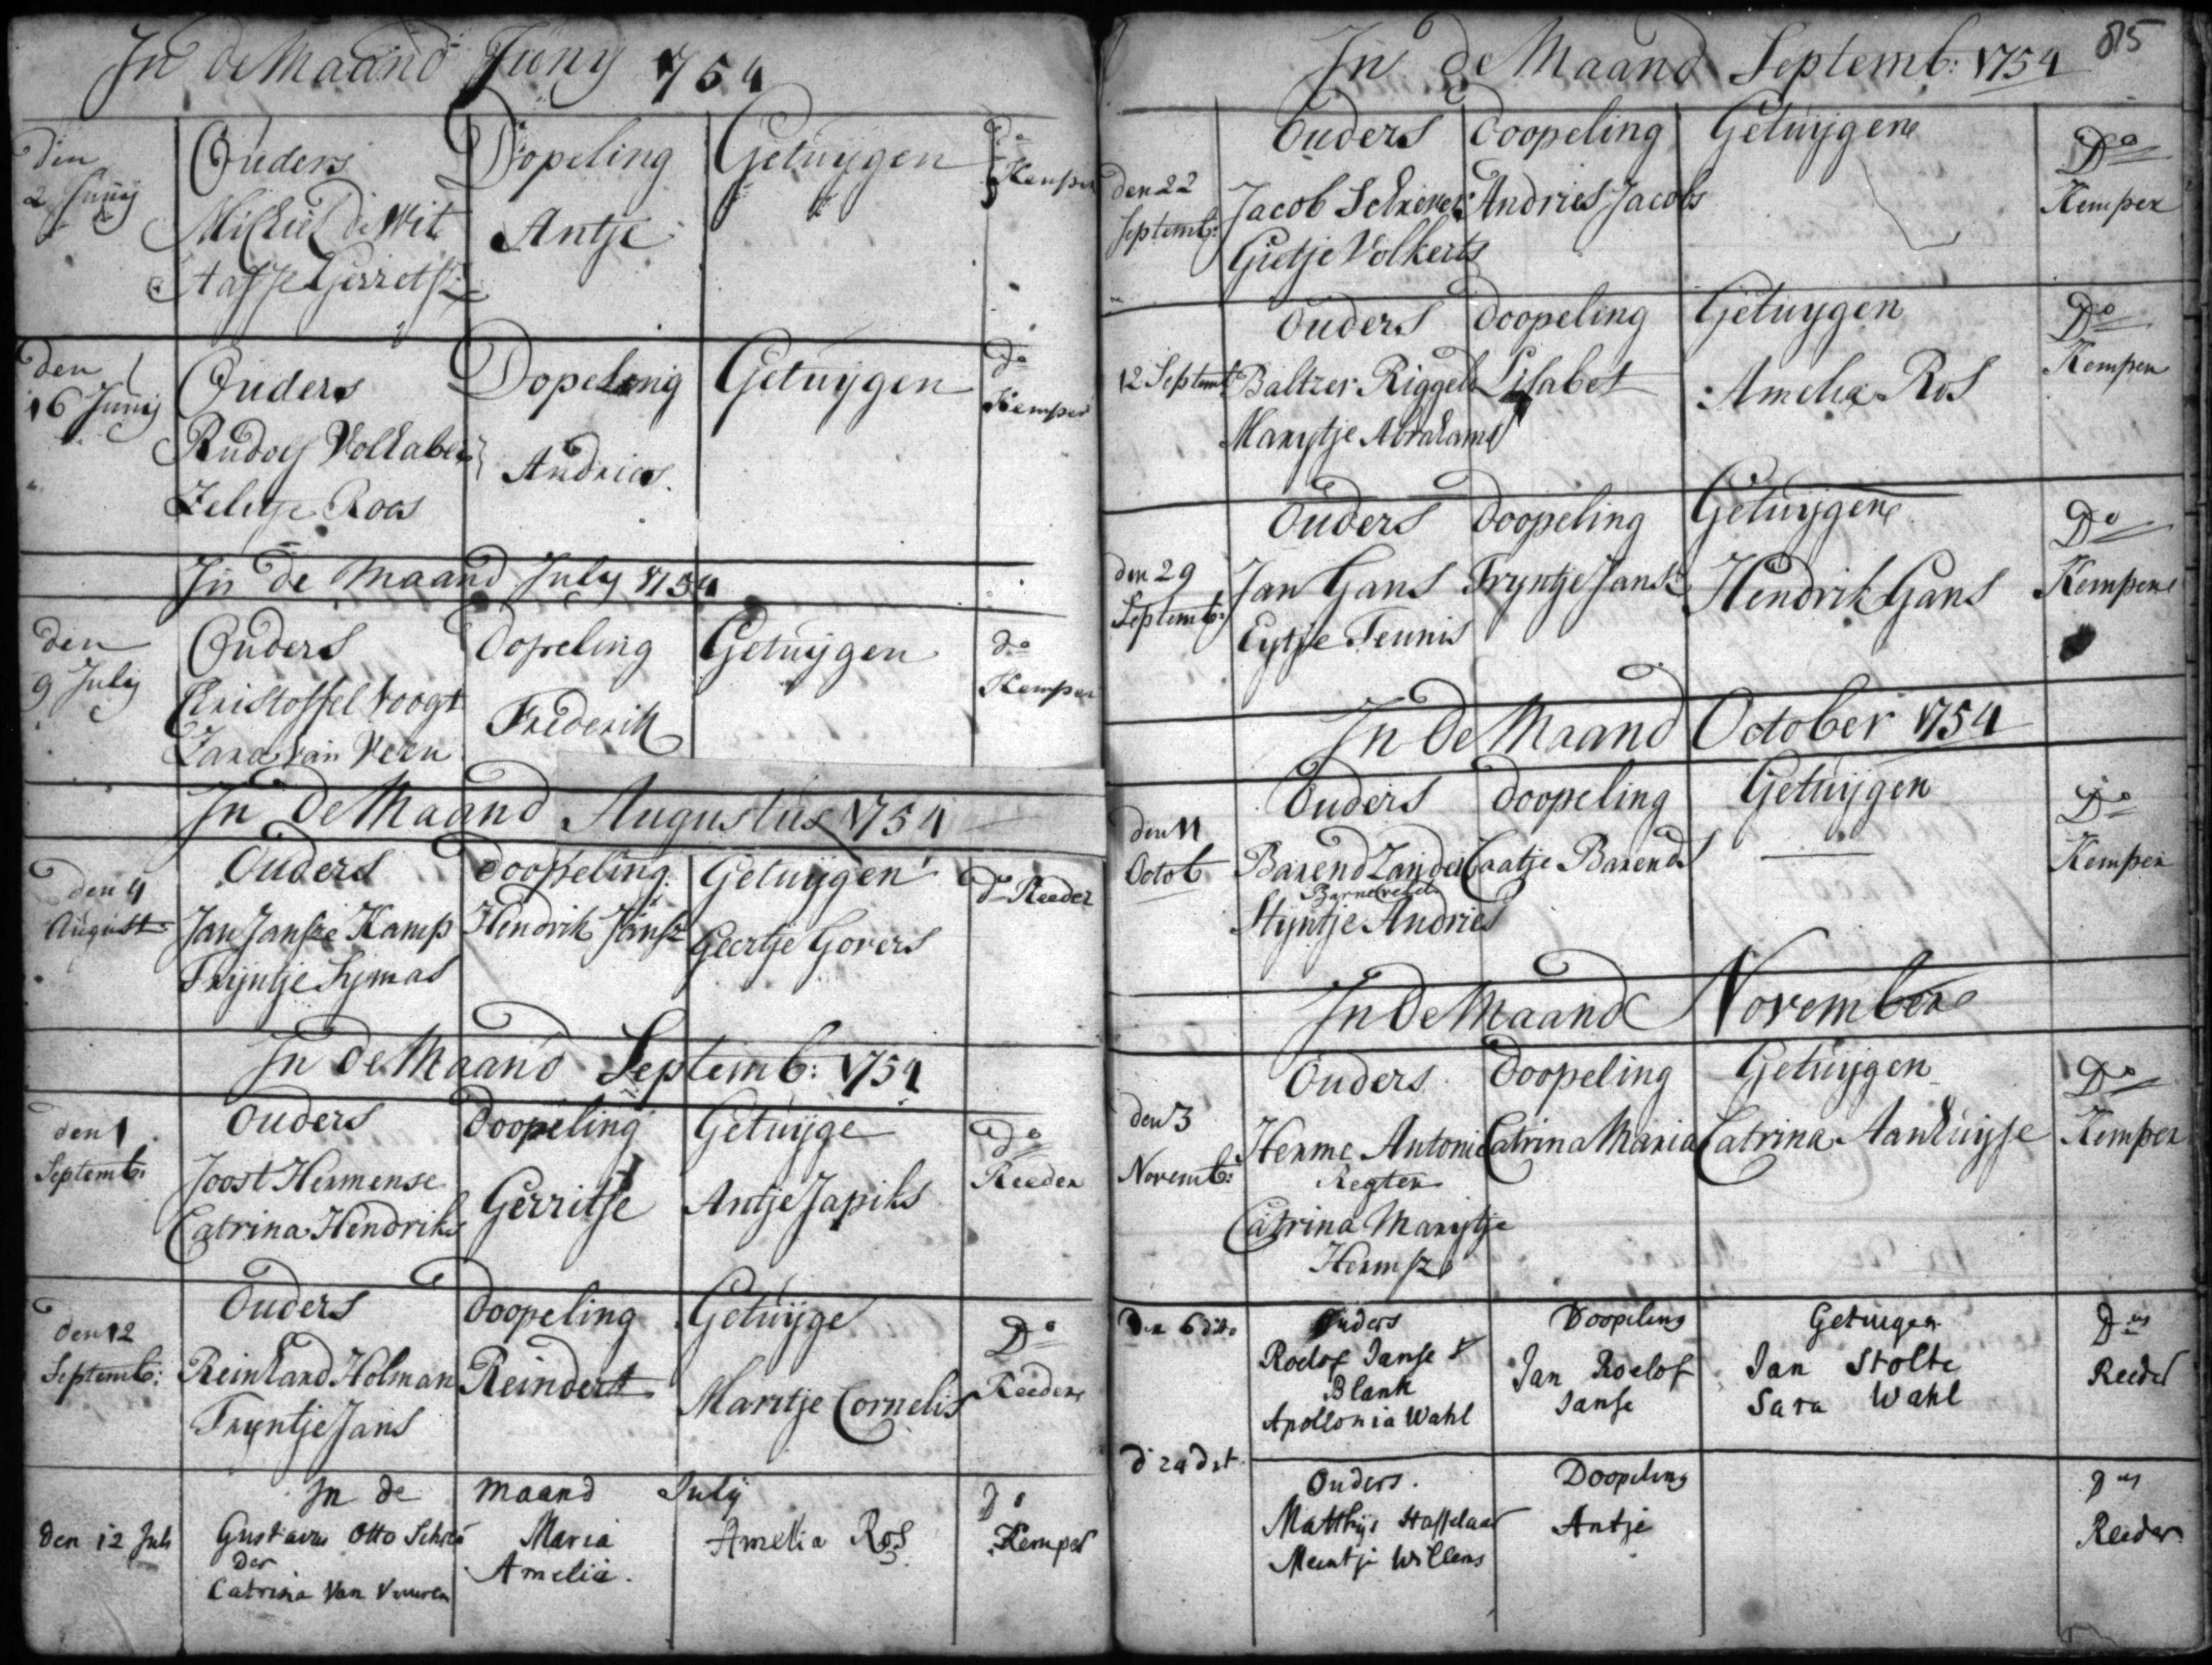 In de Maand Juny 1754
den 2 Junij
Ouders Dopeling Getuijgen Do Kemper
Michiel de Wit Antje
Gerrets
den 16 Junij
Ouders Dopeling Getuijgen do Kemper
Rudolf Andries
Roos
In de Maand July 1754
den 9 July
Ouders Dopeling Getuijgen do Kemper
Christoffel Voogt Frederik
Zara van Veen
In de Maand Augustus 1754
den 4 August
Ouders Doopeling Getuijgen do Reeder
Jan Janse Kamp Hendrik Jansz Geertje Govers
Tryntje Symas
In de Maand Septemb: 1754
den 1 Septemb:
Ouders Doopeling Getuijge do Reeder
Joost Hermense Gerritje Antje Japiks
Catrina Hendriks
den 12 Septemb:
Ouders Doopeling Getuijge Do Reeder
Reinhard Holman Reindert Maritje Cornelis
Tryntje Jans
In de maand July Do
den 12 July Gustavus Otto Schrö Maria Amelia Ros Kemper
der Amelia.
Catrina Van Vuuren
85
In de Maand Septemb: 1754
Ouders Doopeling Getuijgen Do Kemper
den 22 Septemb:
Jacob Andries Jacobs
Grietje Volkerts
Ouders Doopeling Getuijgen Do Kemper
12 Septemb Baltzer Riggels Lisabet Amelia Ros
Marytje Abrahams
Ouders Doopeling Getuijgen Do Kemper
den 29 Septemb:
Jan Gans Tryntje Jans Hendrik Gans
Eytje Teunis
In de Maand October 1754
Ouders Doopeling Getuijgen Do Kemper
den 11 Octob
Barend Zander Caatje Barends
Barneveld
Styntje Andries
In de Maand November
Ouders Doopeling Getuijgen Do Kemper
den 3 Novemb:
Herme Antonie Catrina Maria Catrina Aanhuijse
Regter
Catrina Marytje
Hermsz
Den 6 dito Ouders Doopeling Getuigen Dus
Roelof Janse Jan Roelof Jan Stolte Reeder
Blank Janse Sara Wahl
Apollonia Wahl
d 24 dt
Ouders. Doopeling Dus
Matthys Hasselaar Antje Reeder
Meintje Willems